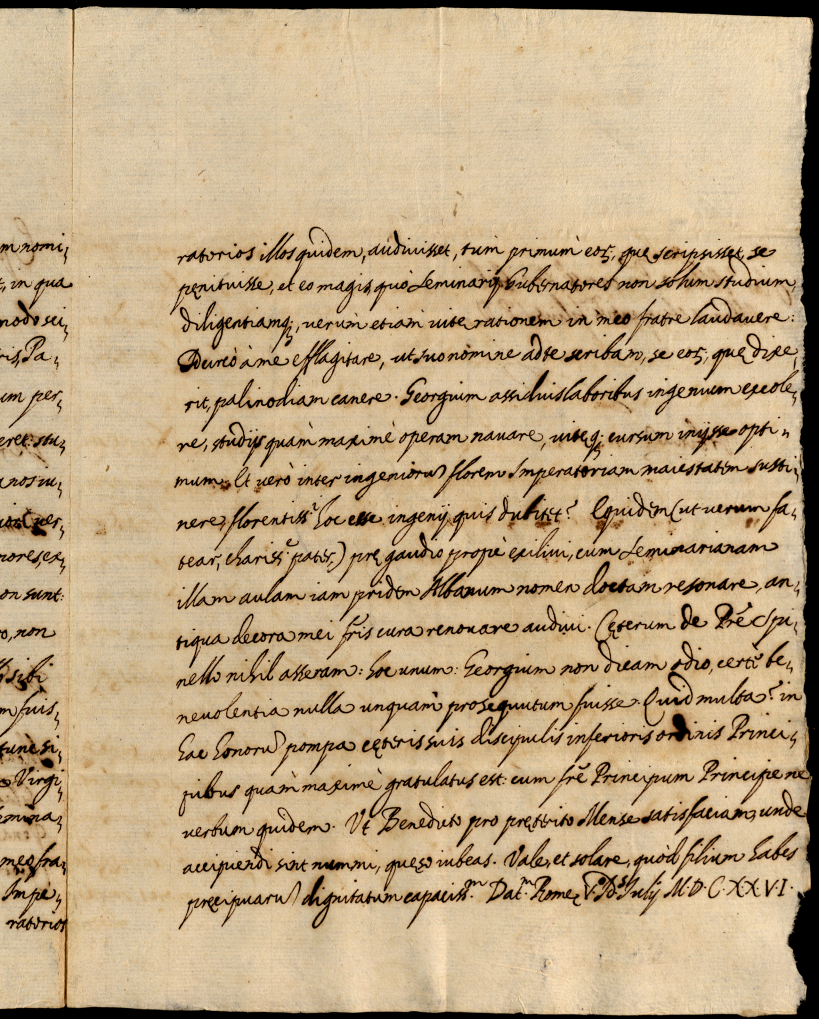 m nomi,
t, in qua
modo sci,
ris, Pa,
um per,
eret: stu,
a nos iu,
ver,
mores, ex,
on sunt:
o, non
sibi
m fuis,
tunc si,
Virgi,
mina,
meo fra,
Impe,
ratorios
ratorios illos quidem, audiuisset, tum primum eoꝝ, quę scripsisset, se
pęnituisse, et eo magis, quò Seminarij Gubernatores non solum studium,
diligentiamq;, verùm etiam uitę rationem in meo fratre laudauere:
Idcircò à me efflagitare, ut suo nomine ad te scribam, se eoꝝ, quę dixe,
rit, palinodiam canere. Georgium assiduis laboribus ingenium excole,
re, studijs quàm maximè operam nauare, uitęq; cursum inijsse opti,
mum. Et verò inter ingenioruʒ florem Imperatoriam maiestatem susti,
nere, florentiss. hoc esse ingenij quis dubitet? Equidem (ut uerum fa,
tear, chariss. pater,) prę gaudio propè exiliui, cum Seminarianam
illam aulam iam pridem Albanum nomen doctam resonare, an,
tiqua decora mei fr̃is cura renouare audiui. Cęterum de Prẽ Spi,
nello nihil asseram: hoc unum: Georgium non dicam odio, certè be,
neuolentia nulla unquam prosequutum fuisse. Quid multa? in
hac honoruʒ pompa cęteris suis discipulis inferioris ordinis Princi,
pibus quàm maximè gratulatus est: cum frẽ Principum Principe ne
verbum quidem. Vt Benedicto pro pręterito Mense satisfaciam, unde
accipiendi sint nummi, quęso iubeas. Vale, et solare, quòd filium habes
pręcipuaruʒ dignitatum capaciss.ᵐ Dat.ᵐ Romę V. Id.ˢ Julij M.D.C.XXVI.